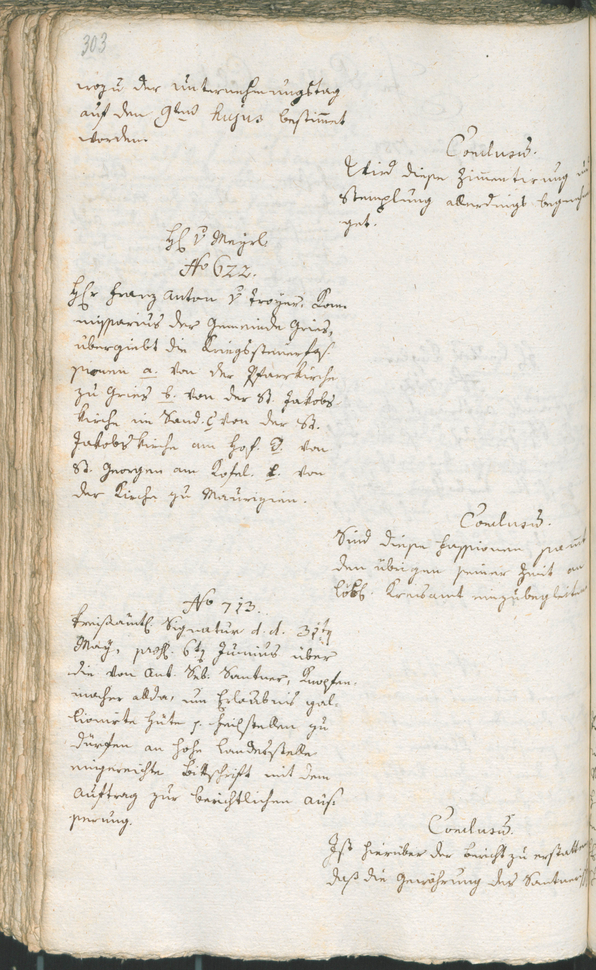 303
wozu der Unternehmungstag
auf den 9ten hujus bestimmt
worden.
Conclusum.
Wird diese Zimentirung und
Stemplung allerdings begneh
get.
H. v. Mayrl
No 622.
Hr Franz Anton v. Troyer, Kom¬
missarius der Gemeinde Gries,
übergiebt die Kriegssteuerfas¬
sionen a. von der Pfarrkirche
zu Gries b. von der St. Jakobs
kirche im Sand. c von der St.
Jakobskirche am Hof. d. von
St. Georgen am Kofel. e. von
der Kirche zu Maurizien.
Conclusum.
Sind diese Fassionen samt
den übrigen seiner Zeit an
löbl. Kreisamt einzubegleiten
No 713.
Kreisämtl. Signatur d. d. 31ten
May, pros. 6ten Junius über
die von Ant. Seb. Santner, Knopfen¬
macher allda, um Erlaubnis gal¬
lionirte Hüte feilstellen zu
dürfen an hohe Landesstelle
eingereichte Bittschrift mit dem
Auftrag zur berichtlichen Aus¬
serung.
Conclusum.
Ist hierüber der Bericht zu erstatten
daß die Gewährung des